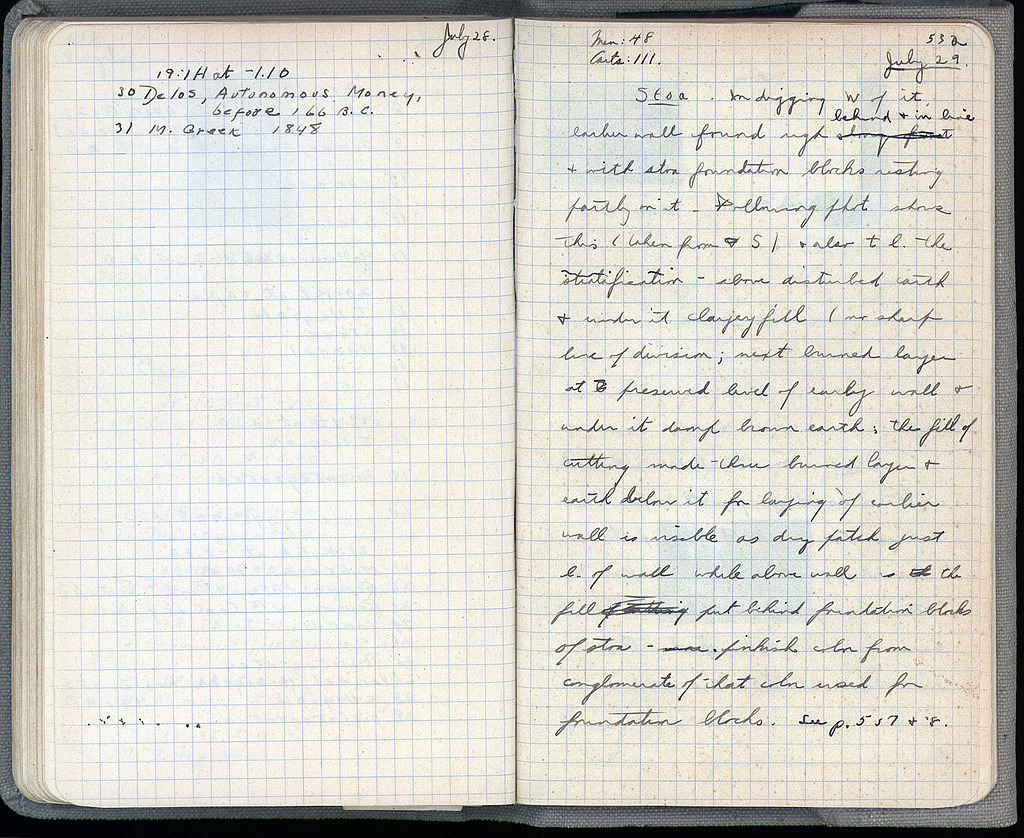 July 28.
19:1H at -1.10
30 Delos, Autonomous Money,
before 166 B.C.
31 M. Greek 1848
Men: 48
Carts: 111.
530
July 29.
Stoa. In digging W of it,
behind & in line
earlier wall found right along front
& with stoa foundation blocks resting
partly on it - Following phot shows
this (taken from S) & also t l. the
stratification - above disturbed earth
& under it clayey fill (no sharp
line of division; next burned layer
at preserved level of early wall &
under it damp brown earth; the fill of
cutting made thru burned layer &
earth below it for laying of earlier
wall is visible as dry patch just
l. of wall while above wall is the
fill of cutting put behind foundation blocks
of stoa - pinkish color from
conglomerate of that color used for
foundation blocks. See p. 557 & 8.